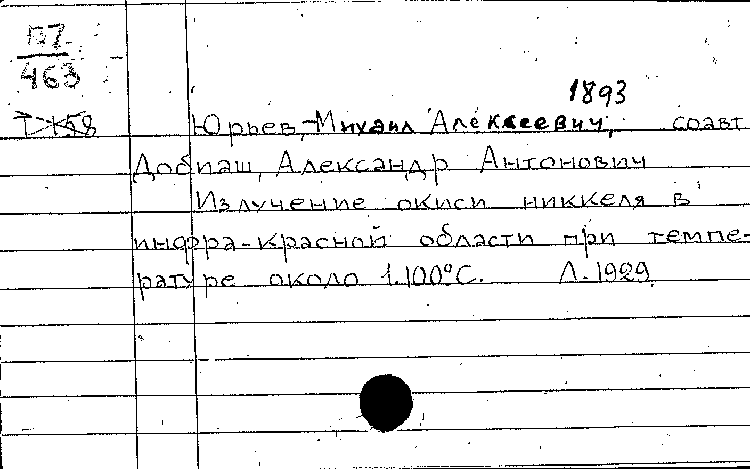 П7
463
1893
Юрьев, Михаил Алексеевич, соавт
Добиаш, Александр Антонович
Излучение окиси никкеля в
инфра-красной области при темпе-
ратуре около 1.100°С. Л. 1929.